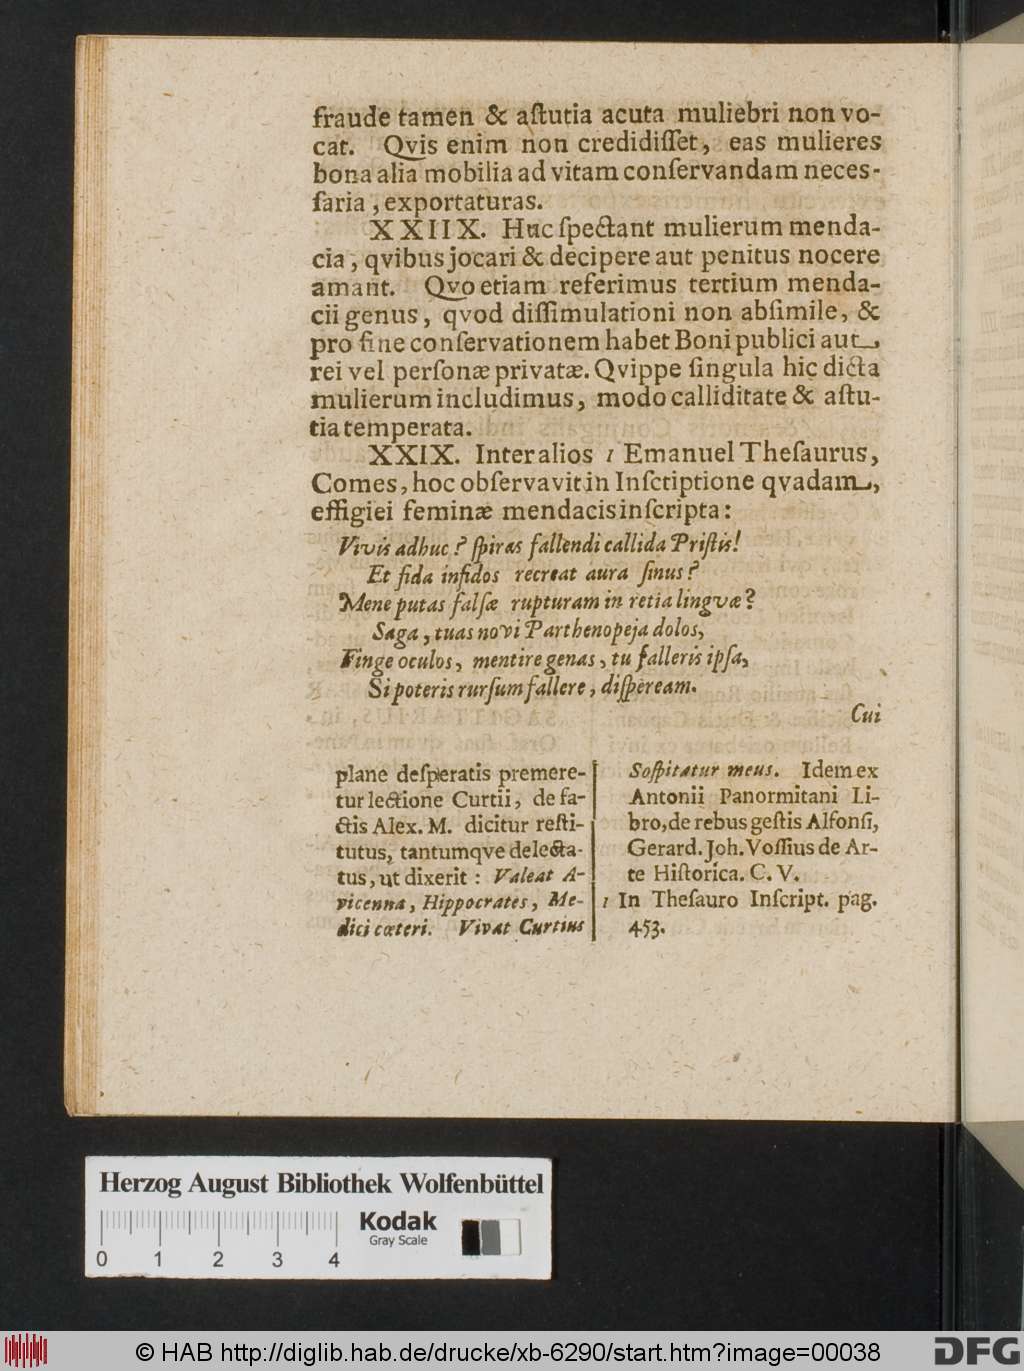 fraude tamen & aſtutia acuta muliebri non vo-
cat. Qvis enim non credidiſſet, eas mulieres
bona alia mobilia ad vitam conſervandam neces-
ſaria, exportaturas.
XXIIX. Huc ſpectant mulierum menda-
cia, qvibus jocari & decipere aut penitus nocere
amant. Qvo etiam referimus tertium menda-
cii genus, qvod diſſimulationi non abſimile, &
pro fine conſervationem habet Boni publici aut
rei vel perſonæ privatæ. Qvippe ſingula hic dicta
mulierum includimus, modo calliditate & aſtu-
tia temperata.
XXIX. Inter alios ı Emanuel Theſaurus,
Comes, hoc obſervavit in Inſctiptione qvadam,
effigiei feminæ mendacis inſcripta:
Vivis adhuc? ſpiras fallendi callida Priſtis!
Et fida infidos recreat aura ſinus?
Mene putas falſæ rupturam in retia lingvæ?
Saga, tuas novi Parthenopeja dolos,
Finge oculos, mentire genas, tu falleris ipſa,
Si poteris rurſum fallere, diſpeream.
Cui
plane deſperatis premere-
tur lectione Curtii, de fa-
ctis Alex. M. dicitur reſti-
tutus, tantumqve delecta-
tus, ut dixerit: Valeat A-
vicenna, Hippocrates, Me-
dici cæteri. Vivat Curtius
Soſpitatur meus. Idem ex
Antonii Panormitani Li-
bro, de rebus geſtis Alfonſi,
Gerard. Joh. Voſſius de Ar-
te Hiſtorica. C. V.
ı In Theſauro Inſcript. pag.
453.
Herzog August Bibliothek Wolfenbüttel
Kodak
Gray Scale
0 1 2 3 4
© HAB http://diglib.hab.de/drucke/xb-6290/start.htm?image=00038
DFG